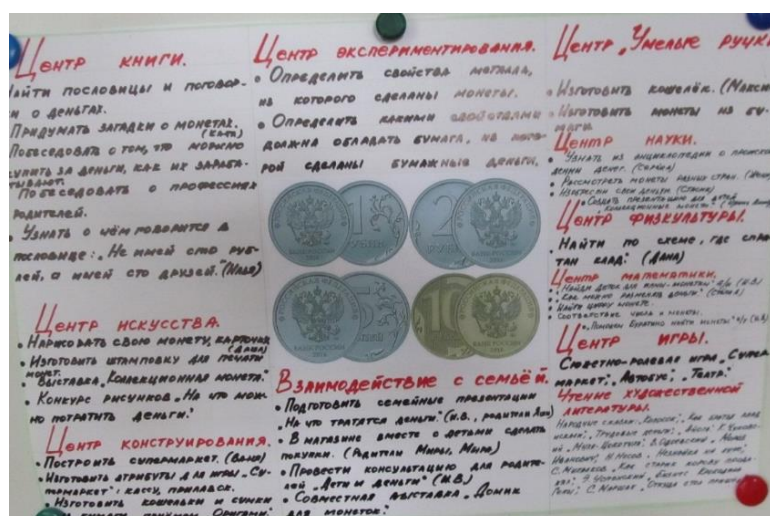 Центр книги.
Найти пословицы и поговор-
и о деньгах.
Придумать загадки о монетах.
(Катя)
Побеседовать о том, что можно
купить за деньги, как их зараба-
тывают.
Побеседовать о профессиях
родителей.
• Узнать о чём говорится в
пословице: „Не имей сто руб-
лей, а имей сто друзей."
Центр искусства.
• Нарисовать свою монету, картинки
• Изготовить штамповку для печати
монет.
• Выставка „Коллекционная монета."
• Конкурс рисунков „На что мож-
но потратить деньги."
Центр конструирования.
• Построить супермаркет. (Ваня)
• Изготовить атрибуты для игры „Су-
пермаркет": кассу, прилавок.
• Изготовить кошельки и сумки
из бумаги приёмом „Оригами."
Центр экспериментирования.
• Определить свойства металла,
из которого сделаны монеты.
• Определить какими свойствами
должна обладать бумага, из кото-
рой сделаны бумажные деньги.
1
РУБЛЬ
2
РУБЛЯ
5
РУБЛЕЙ
10
БАНК РОССИИ
Взаимодействие с семьёй.
• Подготовить семейные презентации
„На что тратятся деньги." (И.В., родители Яны)
• В магазине вместе с детьми сделать
покупки. (Родители Миры, Миро)
• Провести консультацию для родите-
лей „Дети и деньги" (И.В.)
• Совместная выставка „Домик
для монеток."
Центр „Умелые ручки
• Изготовить кошелёк.
• Изготовить монеты из бу-
маги.
Центр науки.
• Узнать из энциклопедии о происхо-
дении денег.
• Рассмотреть монеты разных стран.
• Изобрести свои деньги
• Создать презентацию для детей
„Коллекционные монеты"
Центр физкультуры.
Найти по схеме, где спря-
тан клад. (Дана)
Центр математики.
• Найди деткам монетки" (И.В.)
• Как можно разменять деньги"
Найти цифру монете.
• Соответствие числа и монеты.
• „Помоги Буратино найти монеты."
Центр игры.
Сюжетно-ролевая игра „Супер
маркет", „Автобус", „Театр."
Чтение художественной
литературы.
Народные сказки
К. Чуковс-
„Муха-Цокотуха"
Н. Носов „Незнайка на Луне",
С. Михалков „Как старик корову прода-
Э. Успенский
С. Маршак „Откуда стол пришёл